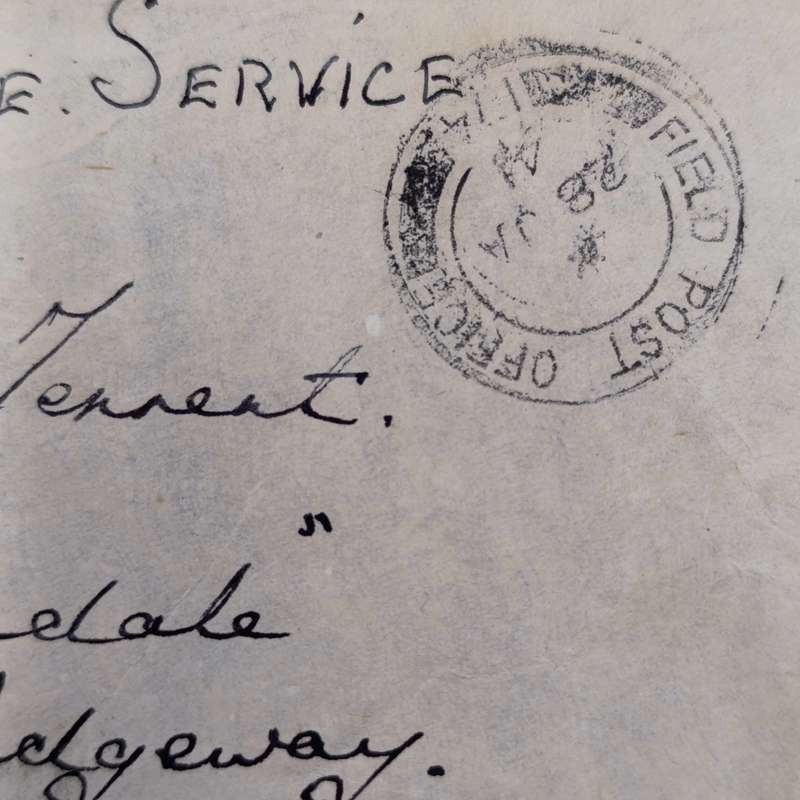 E. SERVICE
FIELD POST OFFICE
28 JA
Tennent.
"
dale
dgeway.